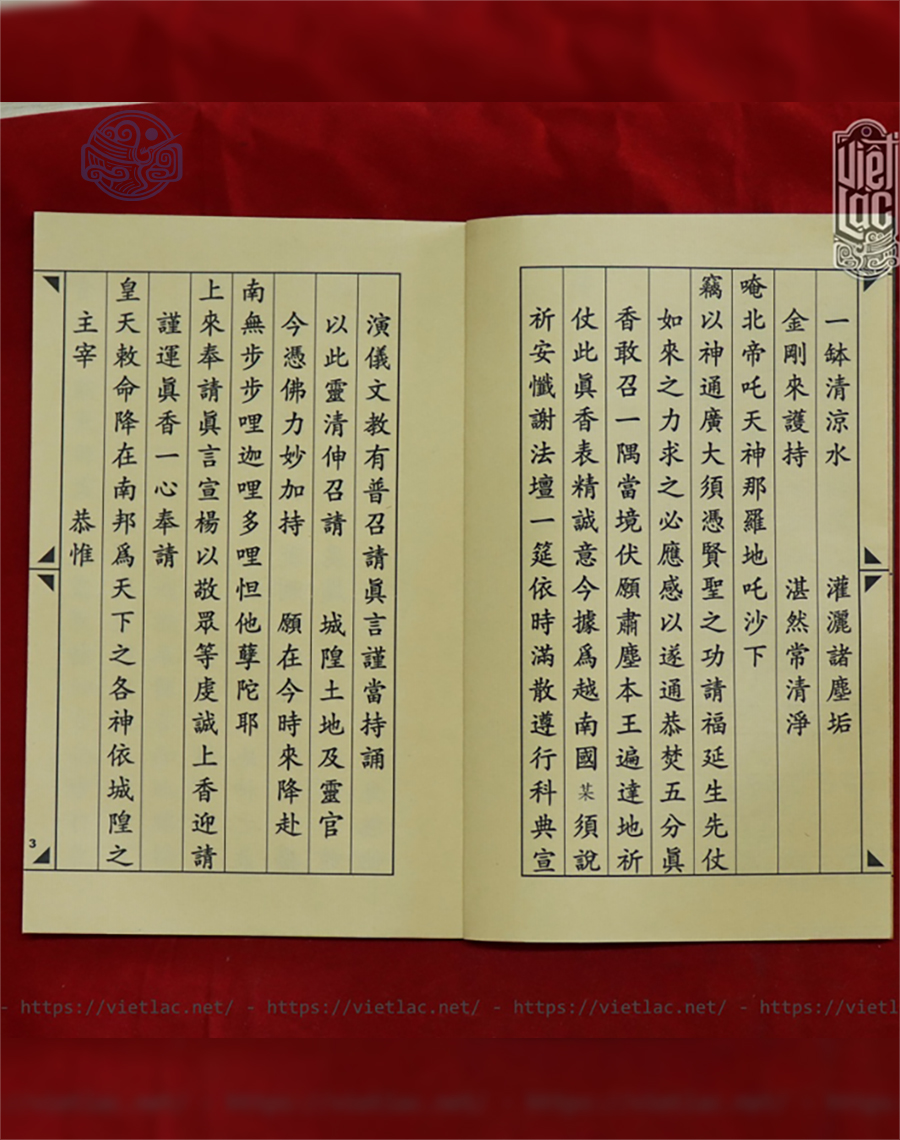 Việt Lạc
一鉢清涼水 灌灑諸塵垢
金剛來護持 湛然常清淨
唵北帝吒天神那羅地吒沙下
竊以神通廣大須憑賢聖之功請福延生先仗
如來之力求之必應感以遂通恭焚五分眞
香敢召一隅當境伏願肅塵本王遍達地祈
仗此眞香表精誠意今據爲越南國某須說
祈安懺謝法壇一筵依時滿散遵行科典宣
演儀文教有普召請眞言謹當持誦
以此靈清伸召請 城隍土地及靈官
今憑佛力妙加持 願在今時來降赴
南無步步哩迦哩多哩怛他孽陀耶
上來奉請眞言宣楊以敬眾等虔誠上香迎請
謹運眞香一心奉請
皇天敕命降在南邦爲天下之各神依城隍之
主宰 恭惟
3
- https://vietlac.net/ - https://vietlac.net/ - https://vietlac.net/ - https://vietl